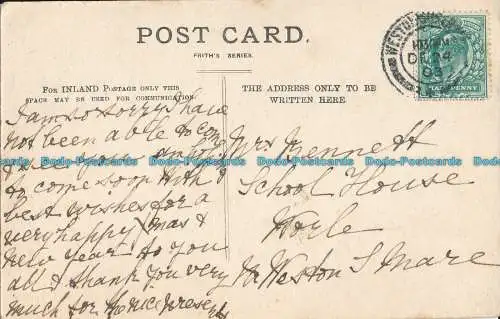 POST CARD.
FRITH'S SERIES.
FOR INLAND POSTAGE ONLY THIS
SPACE MAY BE USED FOR COMMUNICATION.
THE ADDRESS ONLY TO BE
WRITTEN HERE.
I am so sorry I have
not been able to come
to see you am hoping
to come soon With
best wishes for a
very happy Xmas &
New Year to you
all & thank you very
much for the nice presents
Mrs Mennett
School House
Worle
Weston S Mare
DE 24
HALFPENNY
Dodo-Postcards Dodo-Postcards Dodo-Postcards Dodo-Postcards